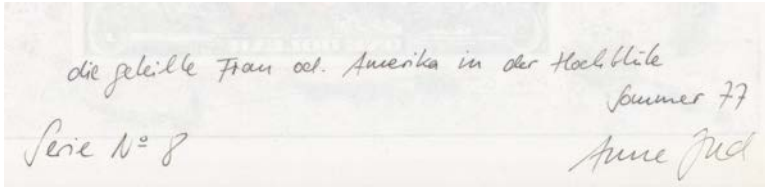 die geteilte Frau od. Amerika in der Hochblüte
Sommer 77
Serie Nº 8
Anne Jud